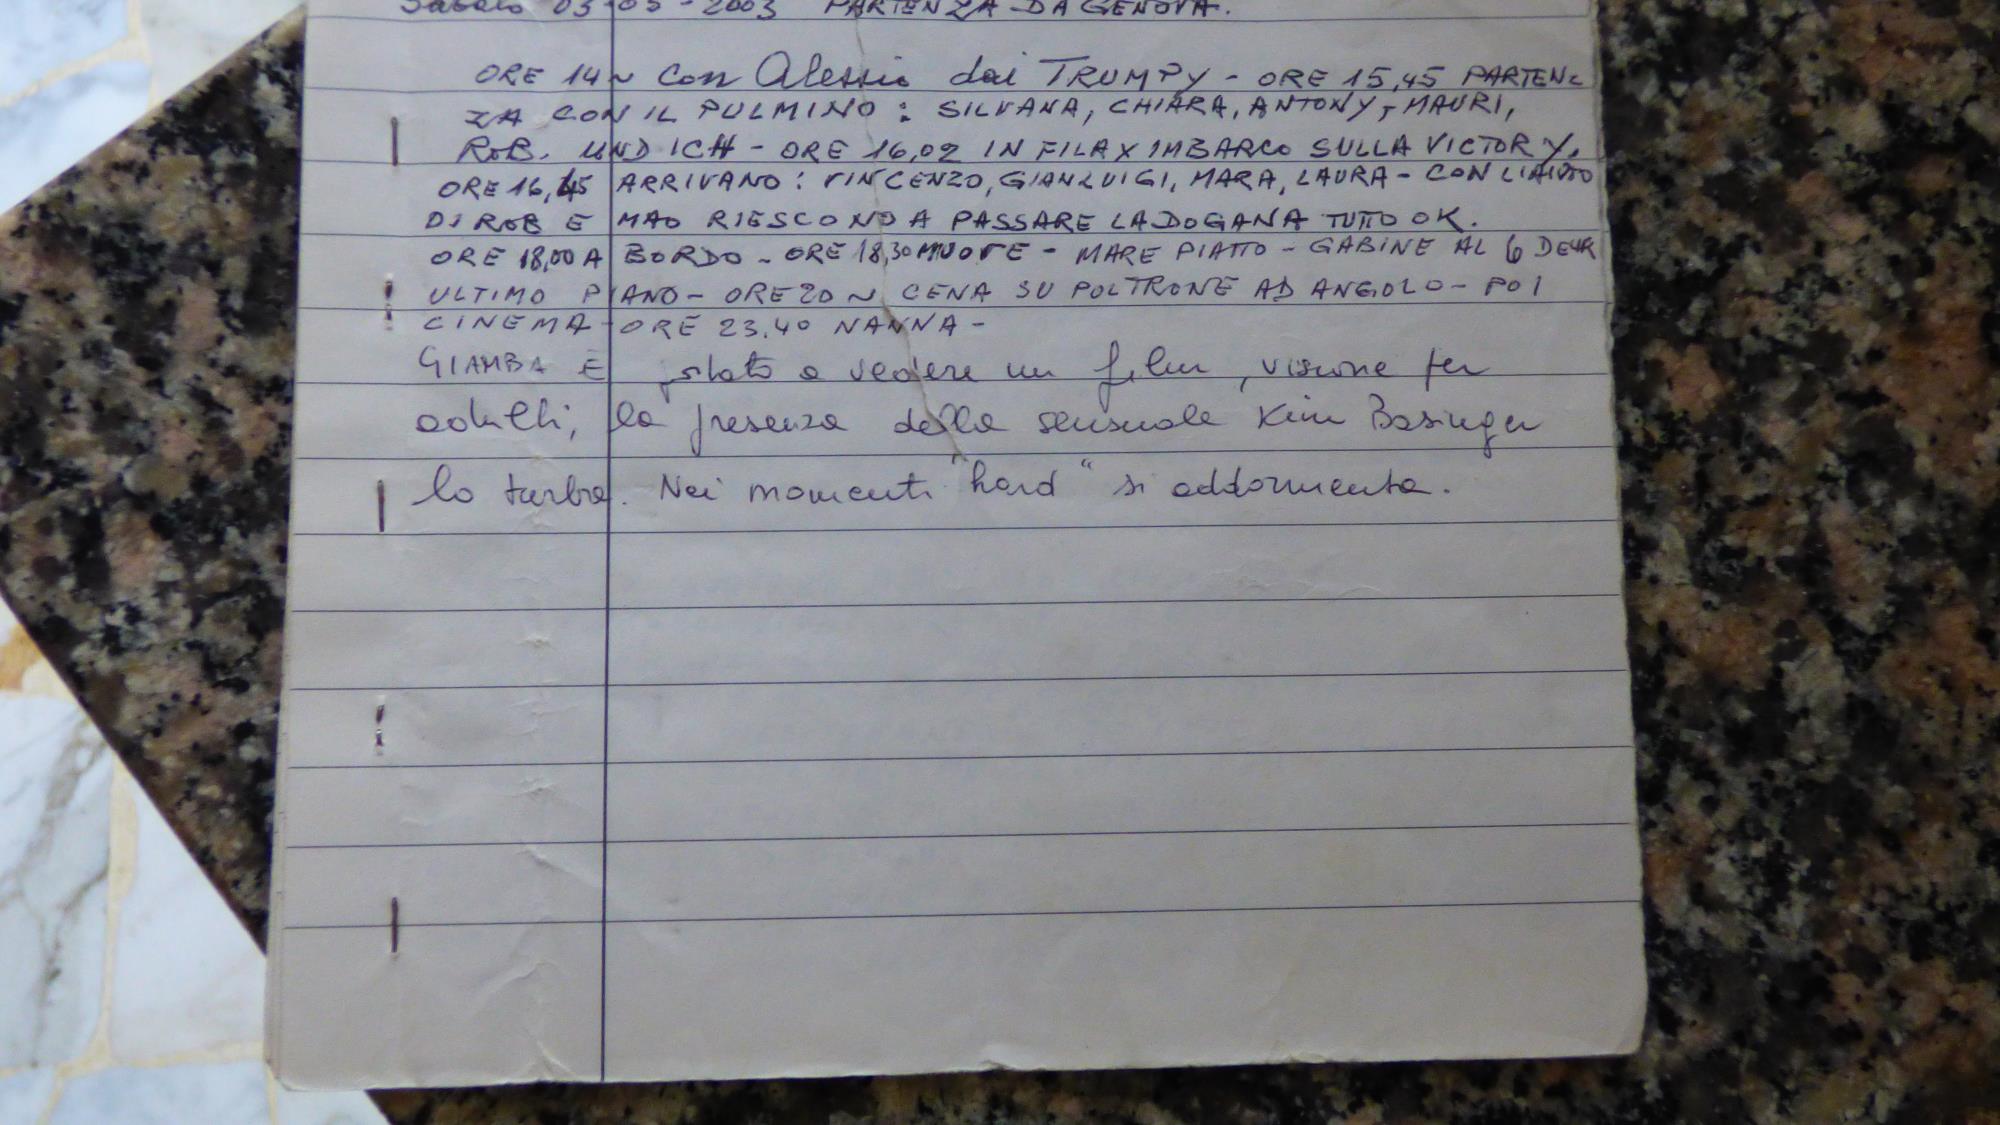 Sabato 03-05-2003 PARTENZA DA GENOVA.
ORE 14~ con Alessio dai TRUMPY - ORE 15,45 PARTEN-
ZA CON IL PULMINO: SILVANA, CHIARA, ANTONY, MAURI,
ROB. UND ICH - ORE 16,02 IN FILA X IMBARCO SULLA VICTORY.
ORE 16,45 ARRIVANO: VINCENZO, GIANLUIGI, MARA, LAURA - CON L'AIUTO
DI ROB E MAO RIESCONO A PASSARE LA DOGANA TUTTO OK.
ORE 18,00 A BORDO - ORE 18,30 MUOVE - MARE PIATTO - CABINE AL 6 DECK
ULTIMO PIANO - ORE 20 ~ CENA SU POLTRONE AD ANGOLO - POI
CINEMA - ORE 23.40 NANNA -
GIAMBA È stato a vedere un film, visione per
adulti, la presenza della sensuale Kim Basinger
lo turba. Nei momenti "hard" si addormenta.